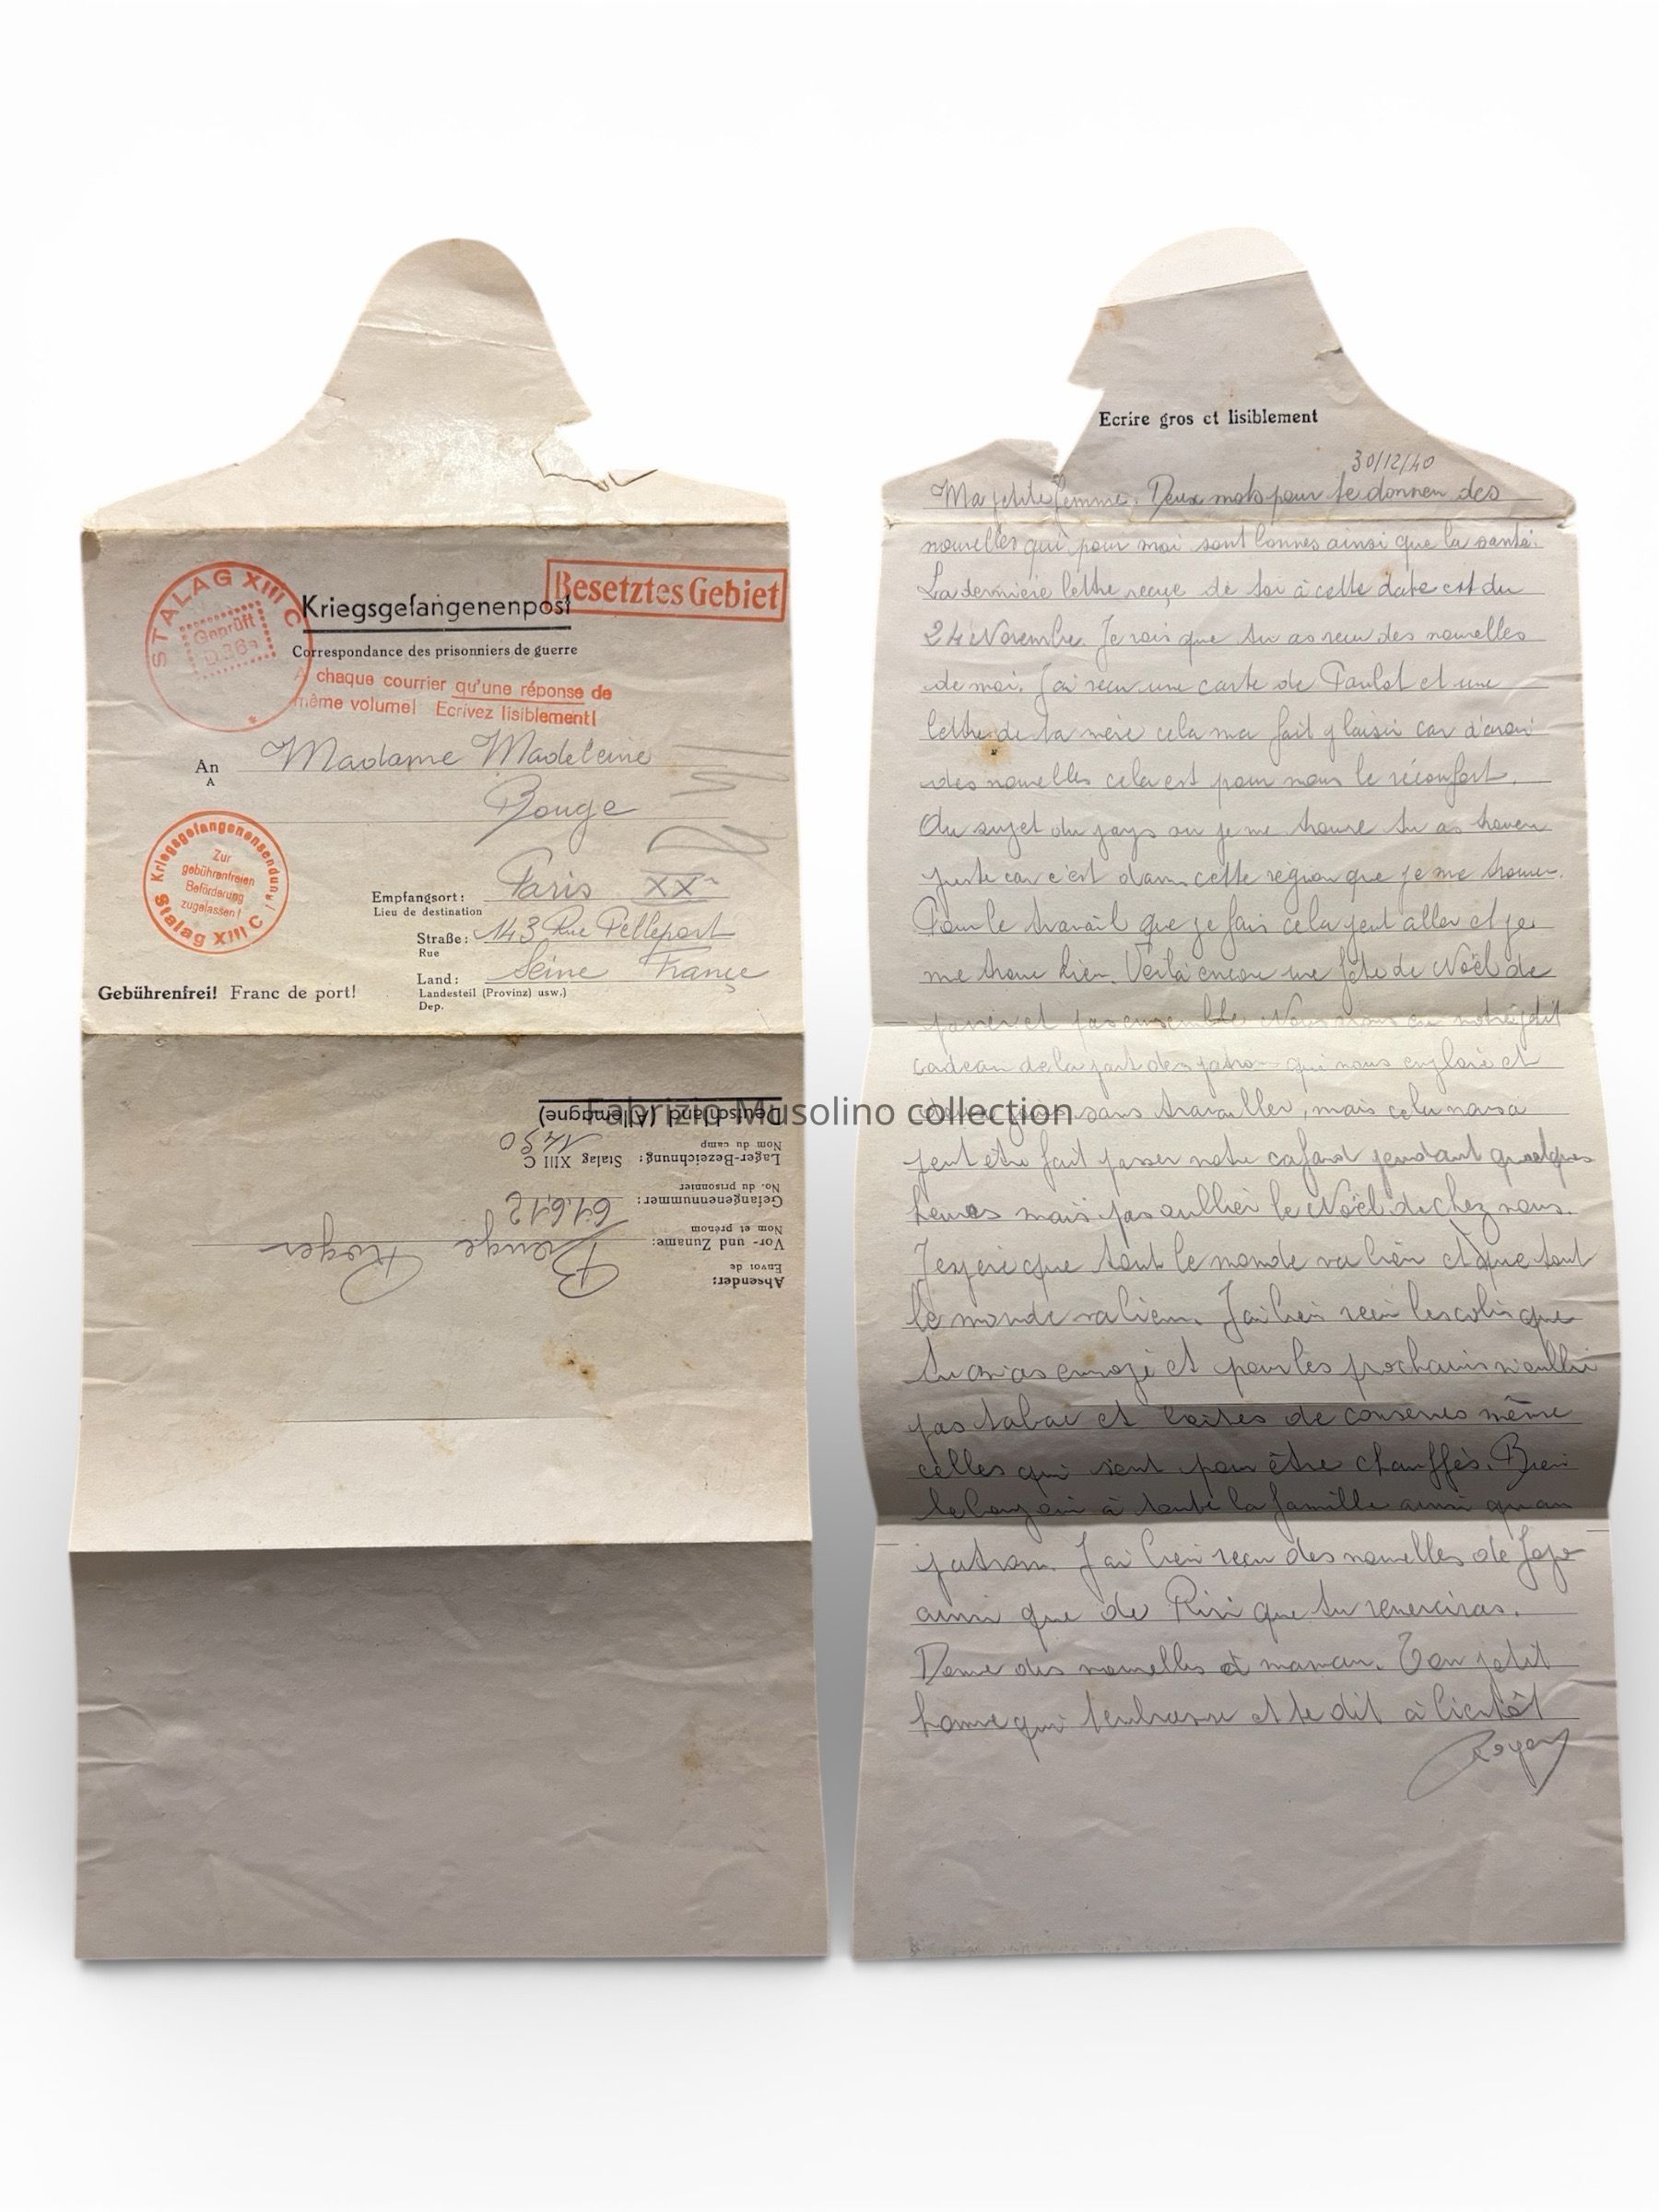 STALAG XIII C
Geprüft
Besetztes Gebiet
Kriegsgefangenenpost
Correspondance des prisonniers de guerre
A chaque courrier qu'une réponse de
même volume! Ecrivez lisiblement!
An Madame Madeleine
A
Bouge
Kriegsgefangenensendung!
Zur
gebührenfreien
Beförderung
zugelassen!
Stalag XIII C
Empfangsort: Paris XX
Lieu de destination
Straße: 143 Rue Pelleport
Rue
Land: Seine France
Landesteil (Provinz) usw.)
Dep.
Gebührenfrei! Franc de port!
Absender:
Envoi de
Vor- und Zuname: Bouge Roger
Nom et prénom
Gefangenennummer: 61.612
No. du prisonnier
Lager-Bezeichnung: Stalag XIII C 1490
Nom du camp
Deutschland (Allemagne)
Fabrizio Musolino collection
Ecrire gros et lisiblement
30/12/40
Ma petite femme. Deux mots pour te donner des
nouvelles qui pour moi sont bonnes ainsi que la santé.
La dernière lettre reçue de toi à cette date est du
24 Novembre. Je vois que tu as reçu des nouvelles
de moi. J'ai reçu une carte de Paulot et une
lettre de ta mère cela ma fait plaisir car d'avoir
des nouvelles cela est pour nous le réconfort.
Au sujet du pays ou je me trouve tu as trouver
juste car c'est dans cette région que je me trouve.
Pour le travail que je fais cela peut aller et je
me trouve bien. Voilà encore une fête de Noël de
passer et pas ensemble. Nous avons eu notre petit
cadeau de la part des patron qui nous emploie et
deux jours sans travailler, mais cela nous a
peut être fait passer notre cafard pendant quelques
heures mais pas oublier le Noël de chez nous.
J'espère que tout le monde va bien et que tout
le monde va bien. J'ai bien reçu les colis que
tu m'as envoyé et pour les prochains n'oublie
pas tabac et boites de conserves même
celles qui sont pour être chauffés. Bien
le bonjour à toute la famille ainsi qu'au
patron. J'ai bien reçu des nouvelles de Jojo
ainsi que de Riri que tu remerciras.
Donne des nouvelles à maman. Ton petit
homme qui t'embrasse et te dit à bientôt
Roger